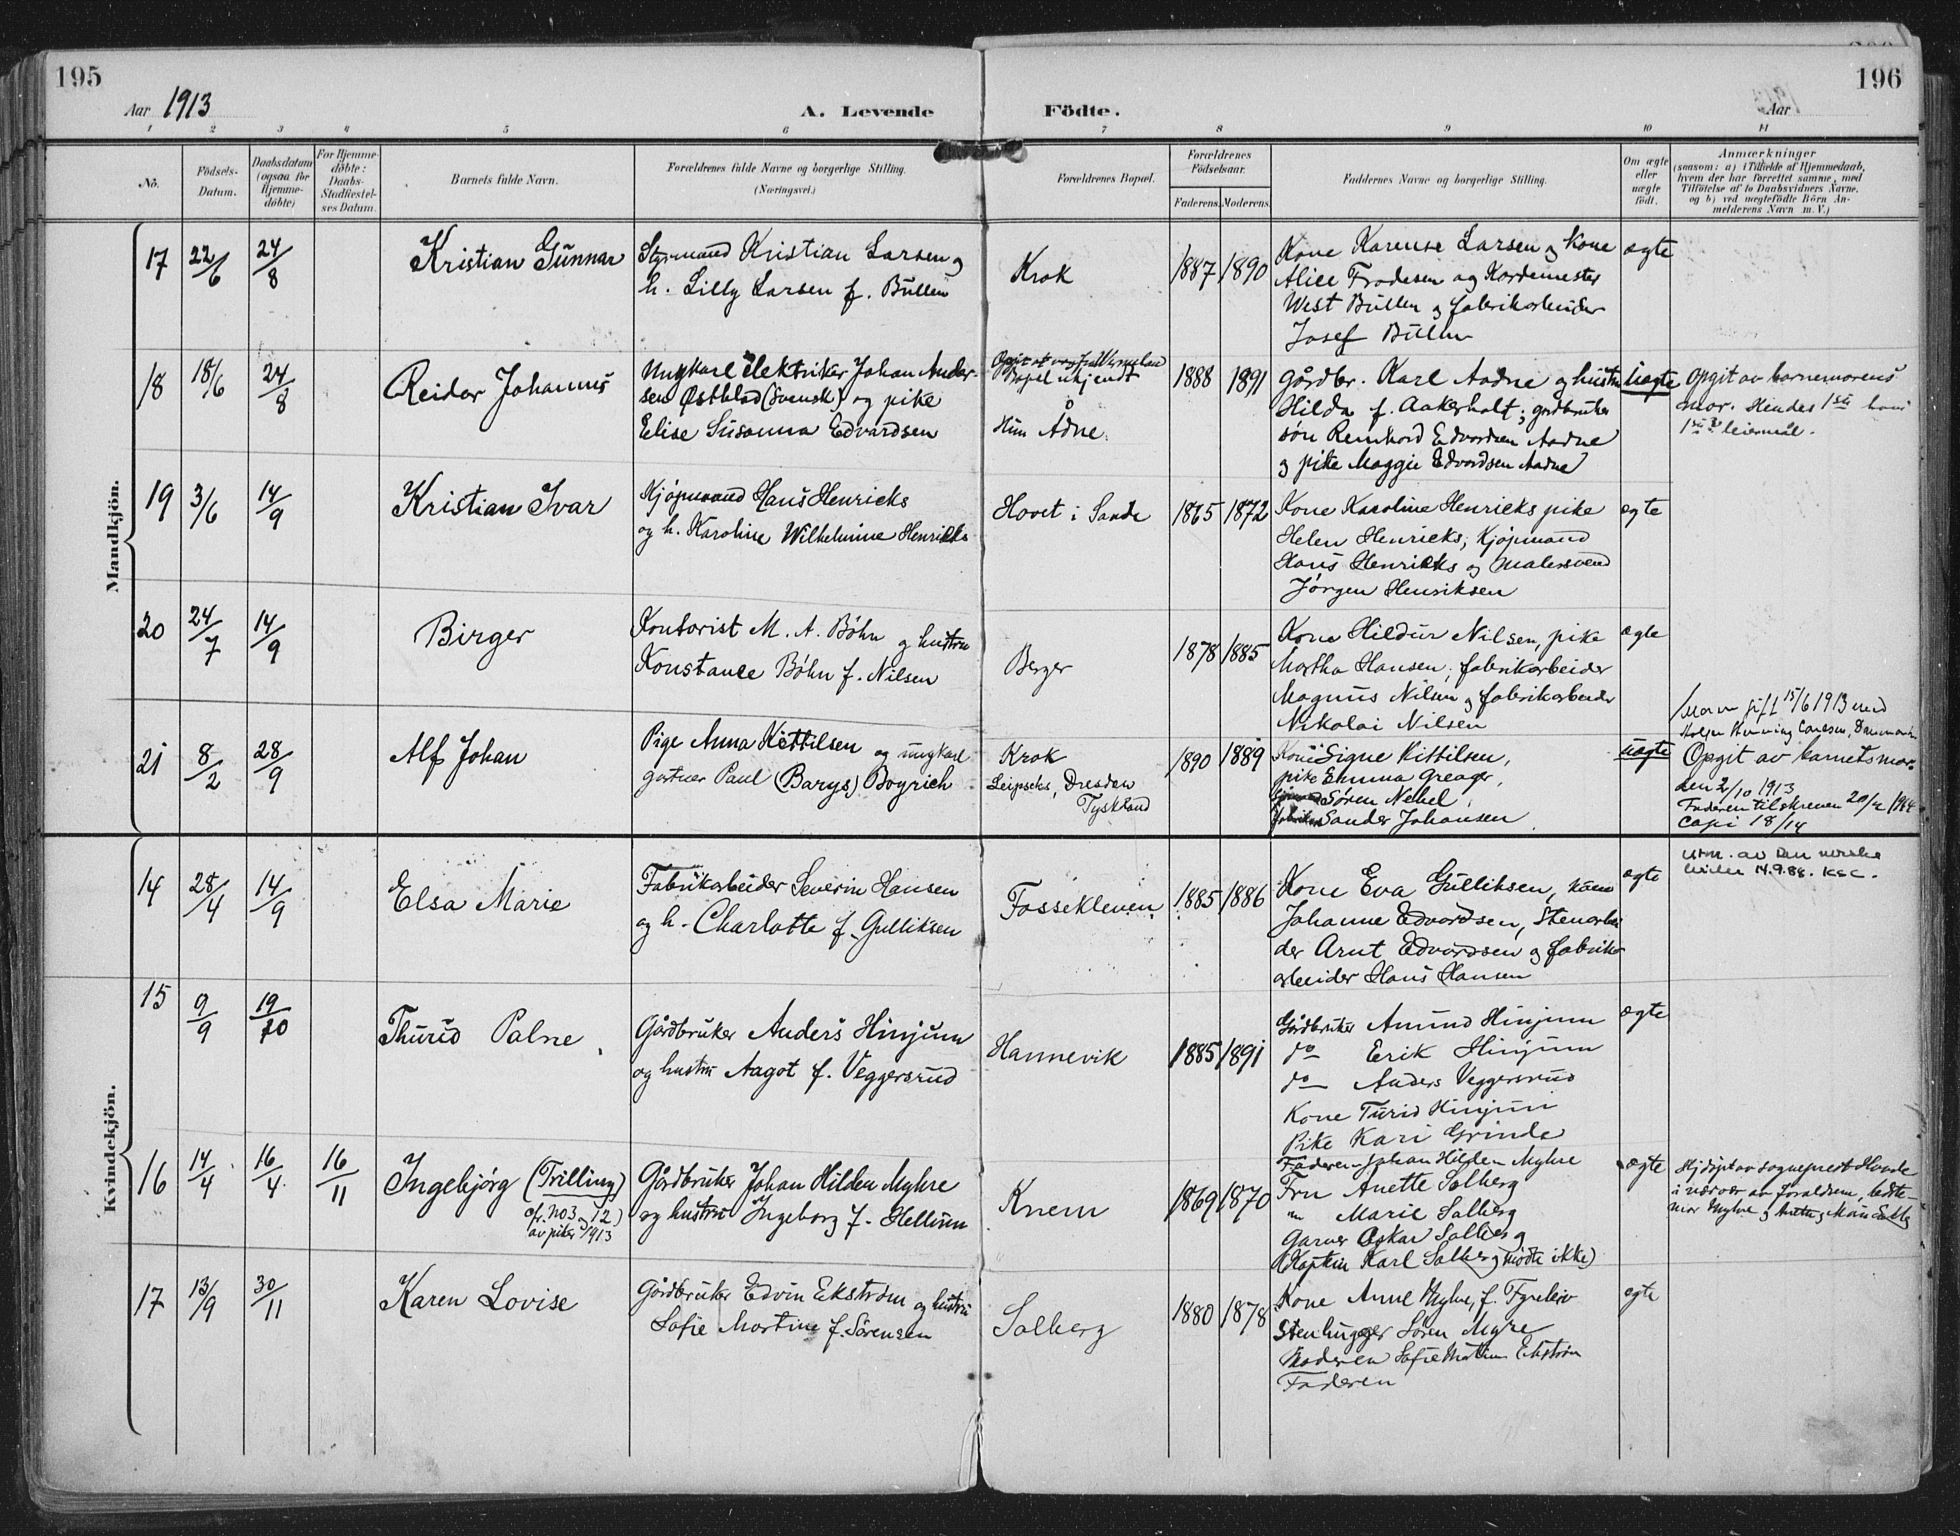 195
196
Aar 1913
A. Levende
Födte.
Aar
1 2 3 4 5 6 7 8 9 10 11
No.
Födsels-Datum.
Daabsdatum (ogsaa for Hjemme-döbte)
For Hjemme-döbte: Daabs-Stadfæstel-ses Datum.
Barnets fulde Navn.
Forældrenes fulde Navne og borgerlige Stilling.
(Næringsvei.)
Forældrenes Bopæl.
Forældrenes Födselsaar.
Faderens. Moderens.
Faddernes Navne og borgerlige Stilling.
Om ægte eller uægte födt.
Anmærkninger
(saasom: a) i Tilfælde af Hjemmedaab,
hvem der har forrettet samme, med
Tilföielse af to Daabsvidners Navne,
og b) ved uægtefödte Börn An-
melderens Navn m. V.)
Mandkjön.
17 22/6 24/8 Kristian Gunnar
Styrmand Kristian Larsen og
h. Lilly Larsen f. Bullen
Krok
1887 1890
Kone Karense Larsen og kone
Alice Frodesen og
West Bullen og fabrikarbeider
Josef Bullen
ægte
18 18/6 24/8 Reidar Johannes
Ungkarl elektriker Johan Ander-
sen Østblad (svensk) og pike
Elise Susanna Edvardsen
Bopel ukjendt
Hun Ådne.
1888 1891
Gårdbr. Karl Aadne og hustru
Hilda f. Aakerholt; gårdbruker
søn Reinhard Edvardsen Aadne
og pike Maggie Edvardsen Aadne
uægte
Opgit av barnemorens
mor. Hendes 1ste hans
1ste leiermål.
19 3/6 14/9 Kristian Ivar
Kjøpmand Hans Henricks
og h. Karoline Wilhelmine Henricks
Hovet i Sande
1865 1872
Kone Karoline Henricks pike
Helen Henricks; Kjøpmand
Hans Henricks og malersvend
Jørgen Henriksen
ægte
20 24/7 14/9 Birger
Kontorist M. A. Bøhn og hustru
Konstance Bøhn f. Nilsen
Berger
1878 1885
Kone Hildur Nilsen, pike
Martha Hansen; fabrikarbeider
Magnus Nilsen og fabrikarbeider
Nikolai Nilsen
ægte
21 8/2 28/9 Alf Johan
Pige Anna Kittilsen og ungkarl
gartner Paul (Barys) Bogrich
Krok
Dresden
Tyskland
1890 1889
Kone Signe Kittilsen,
pike Emma Greager,
Søren Nebel,
Sander Johansen.
uægte
Moren gift 15/6 1913 med
Opgit av barnets mor
den 2/10 1913
Faderen tilskreven
Copi 18/14
Kvindekjön.
14 28/4 14/9 Elsa Marie
Fabrikarbeider Severin Hansen
og h. Charlotte f. Gulliksen
Fossekleven
1885 1886
Kone Eva Gulliksen, kone
Johanne Edvardsen, Stenarbei
der Arnt Edvardsen og fabrik-
arbeider Hans Hansen
ægte
Utm. av den norske
kirke 14.9.88. KSC.
15 9/9 19/10 Thurid Palne
Gårdbruker Anders Hinjum
og hustru Aagot f. Veggersrud
Hannevik
1885 1891
Gårdbruker Amund Hinjum
do Erik Hinjum
do Anders Veggersrud
Kone Turid Hinjum
Pike Kari Grinde
ægte
16 14/4 16/4 16/11 Ingebjörg (Trilling)
cfr. no 3 og 12)
av piker 1913
Gårdbruker Johan Hilden Myhre
og hustru Ingeborg f. Hellum
Knem
1869 1870
Faderen Johan Hilden Myhre
Fru Anette Solberg
" Marie Solberg
Garver Oskar Solberg
(Kaptein Karl Solberg mødte ikke)
ægte
Hjdöpt av sogneprest Hovde
i nærvær av foreldrene, bedste-
mor Myhre og
17 13/9 30/11 Karen Lovise
Gårdbruker Edvin Ekström og hustru
Sofie Martine f. Sörensen
Solberg
1880 1878
Kone Anne Myhre, f.
Stenhugger Sören Myhre
Moderen Sofie Martine Ekström
Faderen
ægte